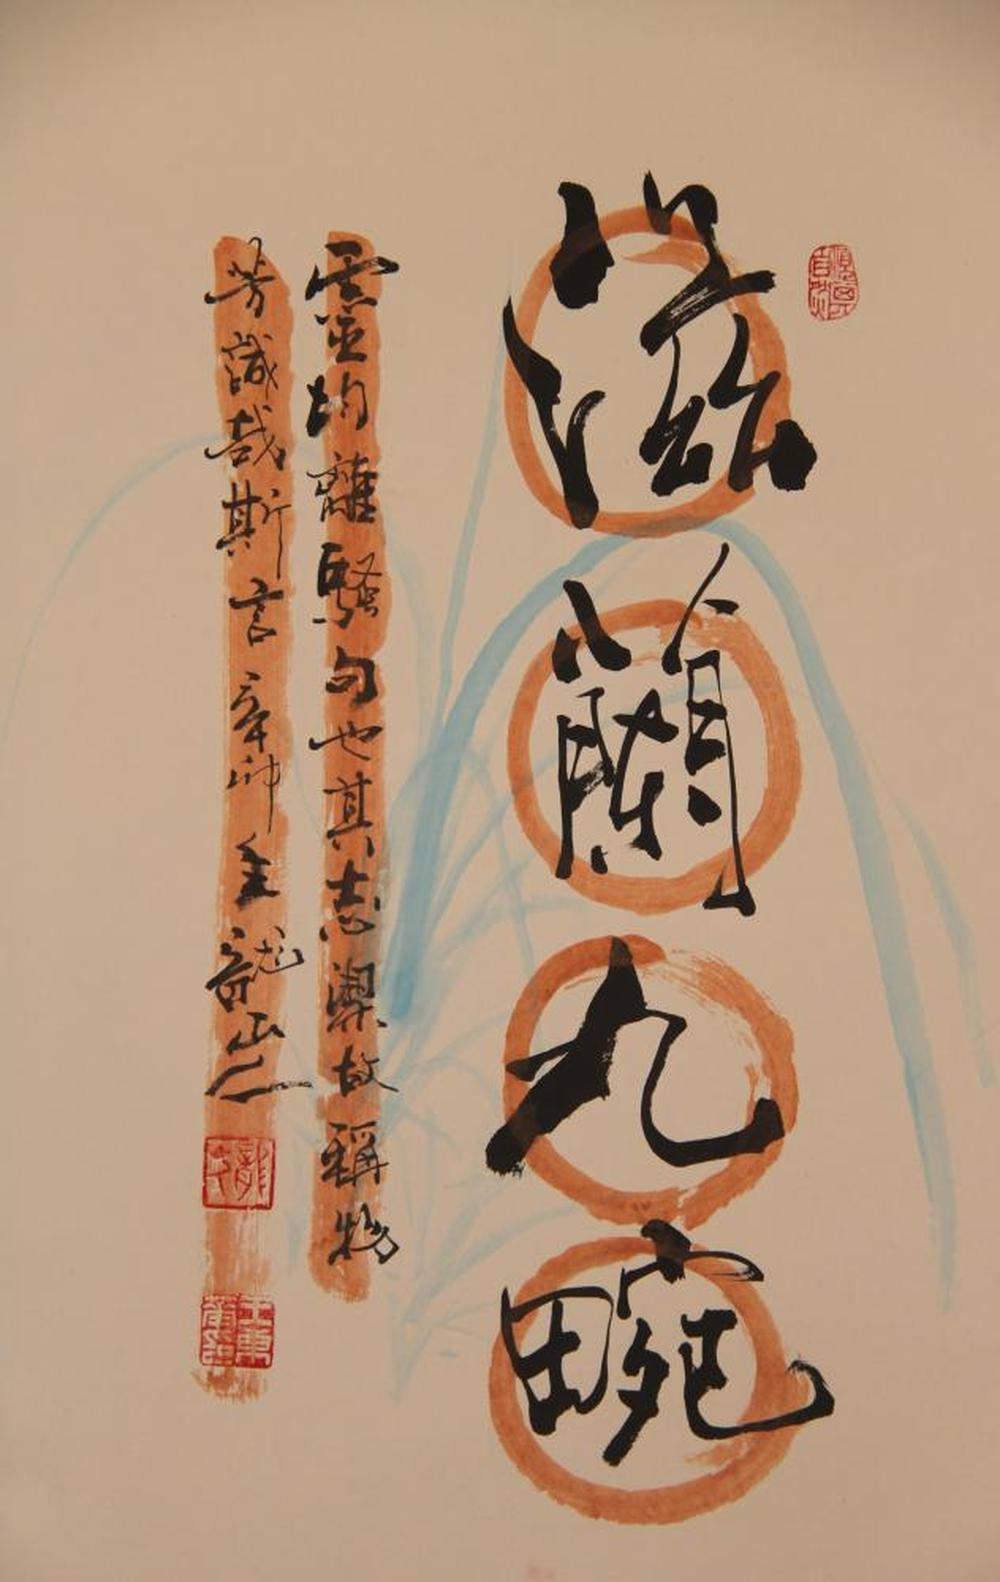 滋蘭九畹
靈均離騷句也其志潔故稱物
芳誠哉斯言辛卯 龍山人